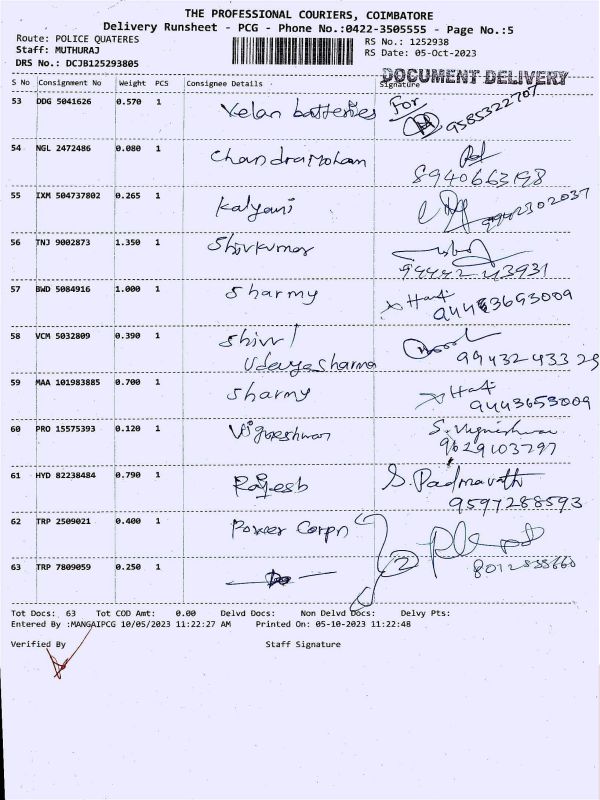 THE PROFESSIONAL COURIERS, COIMBATORE
Delivery Runsheet - PCG - Phone No.:0422-3505555 - Page No.:5
Route: POLICE QUATERES
RS No.: 1252938
Staff: MUTHURAJ
RS Date: 05-Oct-2023
DRS No.: DCJB125293805
DOCUMENT DELIVERY
S No Consignment No Weight PCS Consignee Details Signature
53 DDG 5041626 0.570 1 Velan batteries For
9585322707
54 NGL 2472486 0.080 1 Chandramohan
8940663198
55 IXM 504737802 0.265 1 Kalyani
9942302037
56 TNJ 9002873 1.350 1 Shivkumar
94442 43931
57 BWD 5084916 1.000 1 Sharmy
9443653009
58 VCM 5032809 0.390 1
Udaya Sharma 9943243329
59 MAA 101983885 0.700 1 Sharmy
9443653009
60 PRO 15575393 0.120 1 Vigneshwar S. Vigneshwar
9629103797
61 HYD 82238484 0.790 1 Rajesh S. Padmavathi
9597288593
62 TRP 2509021 0.400 1 Power Corpn
63 TRP 7809059 0.250 1 — Do — 2
Tot Docs: 63 Tot COD Amt: 0.00 Delvd Docs: Non Delvd Docs: Delvy Pts:
Entered By :MANGAIPCG 10/05/2023 11:22:27 AM Printed On: 05-10-2023 11:22:48
Verified By Staff Signature